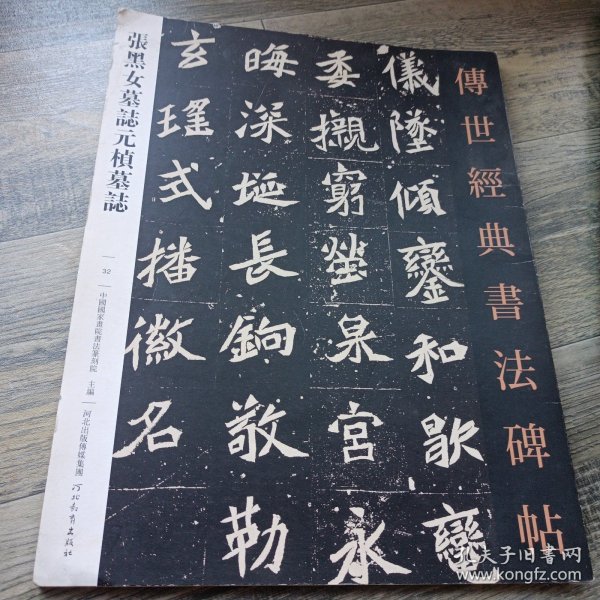 傳世經典書法碑帖
儀墜傾鑾和歇
委櫬窮塋泉宮永
晦深埏長敬勒
玄瑤式播徽名
張黑女墓誌元楨墓誌
32
中國國家畫院書法篆刻院 主編
河北出版傳媒集團
河北教育出版社
孔夫子旧书网
www.kongfz.com